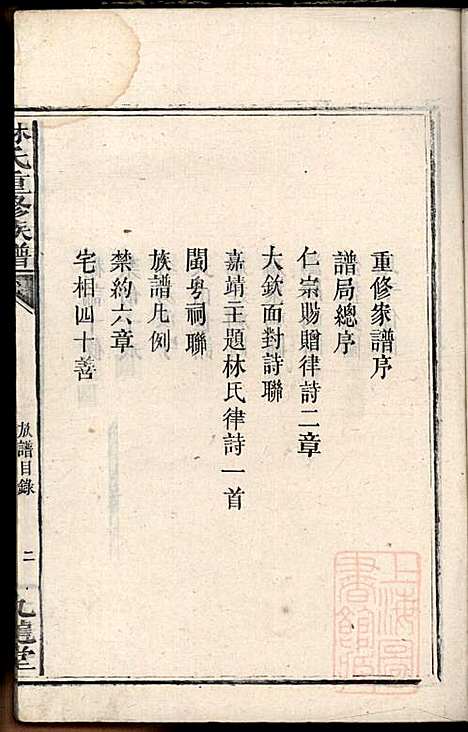 重修家譜序
譜局總序
仁宗賜贈律詩二章
大欽面對詩聯
嘉靖王題林氏律詩一首
閩粵祠聯
族譜凡例
禁約六章
宅相四十善
林氏重修族譜
族譜目錄
二
九龍堂
上海圖書館藏